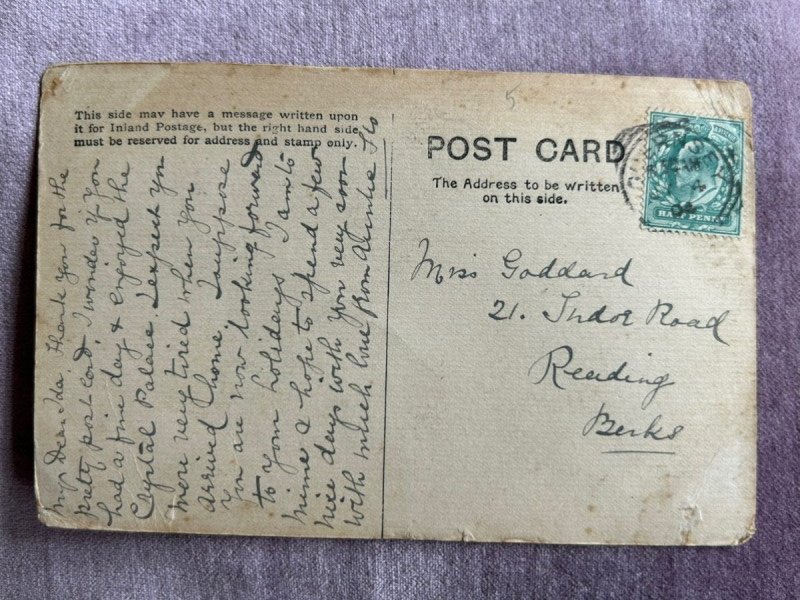 This side may have a message written upon
it for Inland Postage, but the right hand side
must be reserved for address and stamp only.
My Dear Ida. Thank you for the
pretty post card, I wonder if you
had a fine day & enjoyed the
Crystal Palace. I expect you
were very tired when you
arrived home. I suppose
you are now looking forward
to your holidays I am to
mine & hope to spend a few
nice days with you very soon
with much love from Auntie Flo
5
POST CARD
The Address to be written
on this side.
HALFPENNY
4
Miss Goddard
21. Tudor Road
Reading
Berks